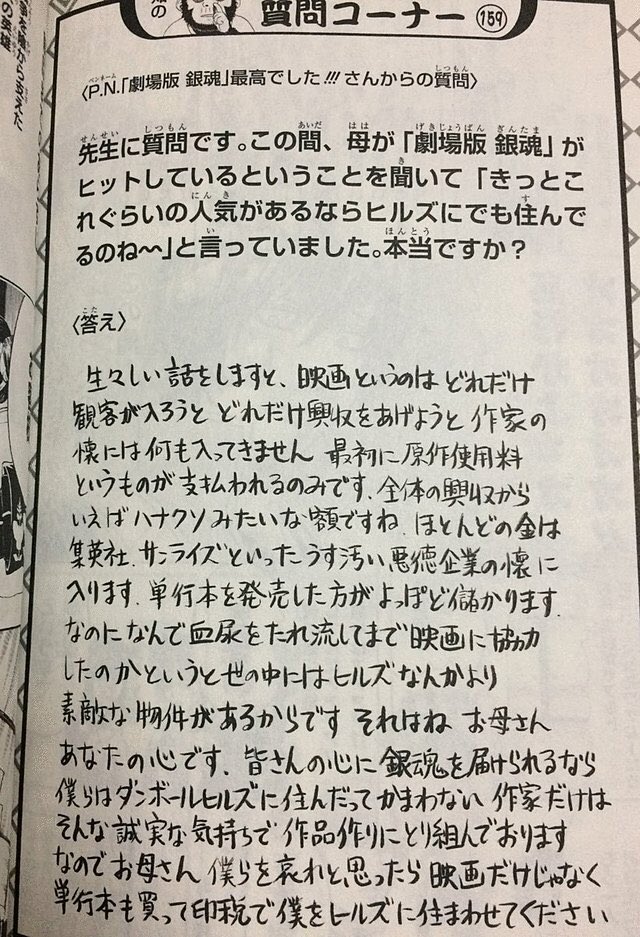 質問コーナー 159
〈P.N.「劇場版 銀魂」最高でした!!! さんからの質問〉
先生に質問です。この間、母が「劇場版 銀魂」が
ヒットしているということを聞いて「きっとこ
れぐらいの人気があるならヒルズにでも住んで
るのね〜」と言っていました。本当ですか？
〈答え〉
生々しい話をしますと、映画というのは どれだけ
観客が入ろうと どれだけ興収をあげようと 作家の
懐には何も入ってきません 最初に原作使用料
というものが支払われるのみです. 全体の興収から
いえばハナクソみたいな額ですね. ほとんどの金は
集英社. サンライズといったうす汚い悪徳企業の懐に
入ります. 単行本を発売した方がよっぽど儲かります.
なのになんで血尿をたれ流してまで映画に協力
したのかというと世の中にはヒルズなんかより
素敵な物件があるからです それはね お母さん
あなたの心です. 皆さんの心に銀魂を届けられるなら
僕らはダンボールヒルズに住んだってかまわない 作家だけは
そんな誠実な気持ちで作品作りにとり組んでおります
なのでお母さん 僕らを哀れと思ったら映画だけじゃなく
単行本も買って印税で僕をヒルズに住まわせてください